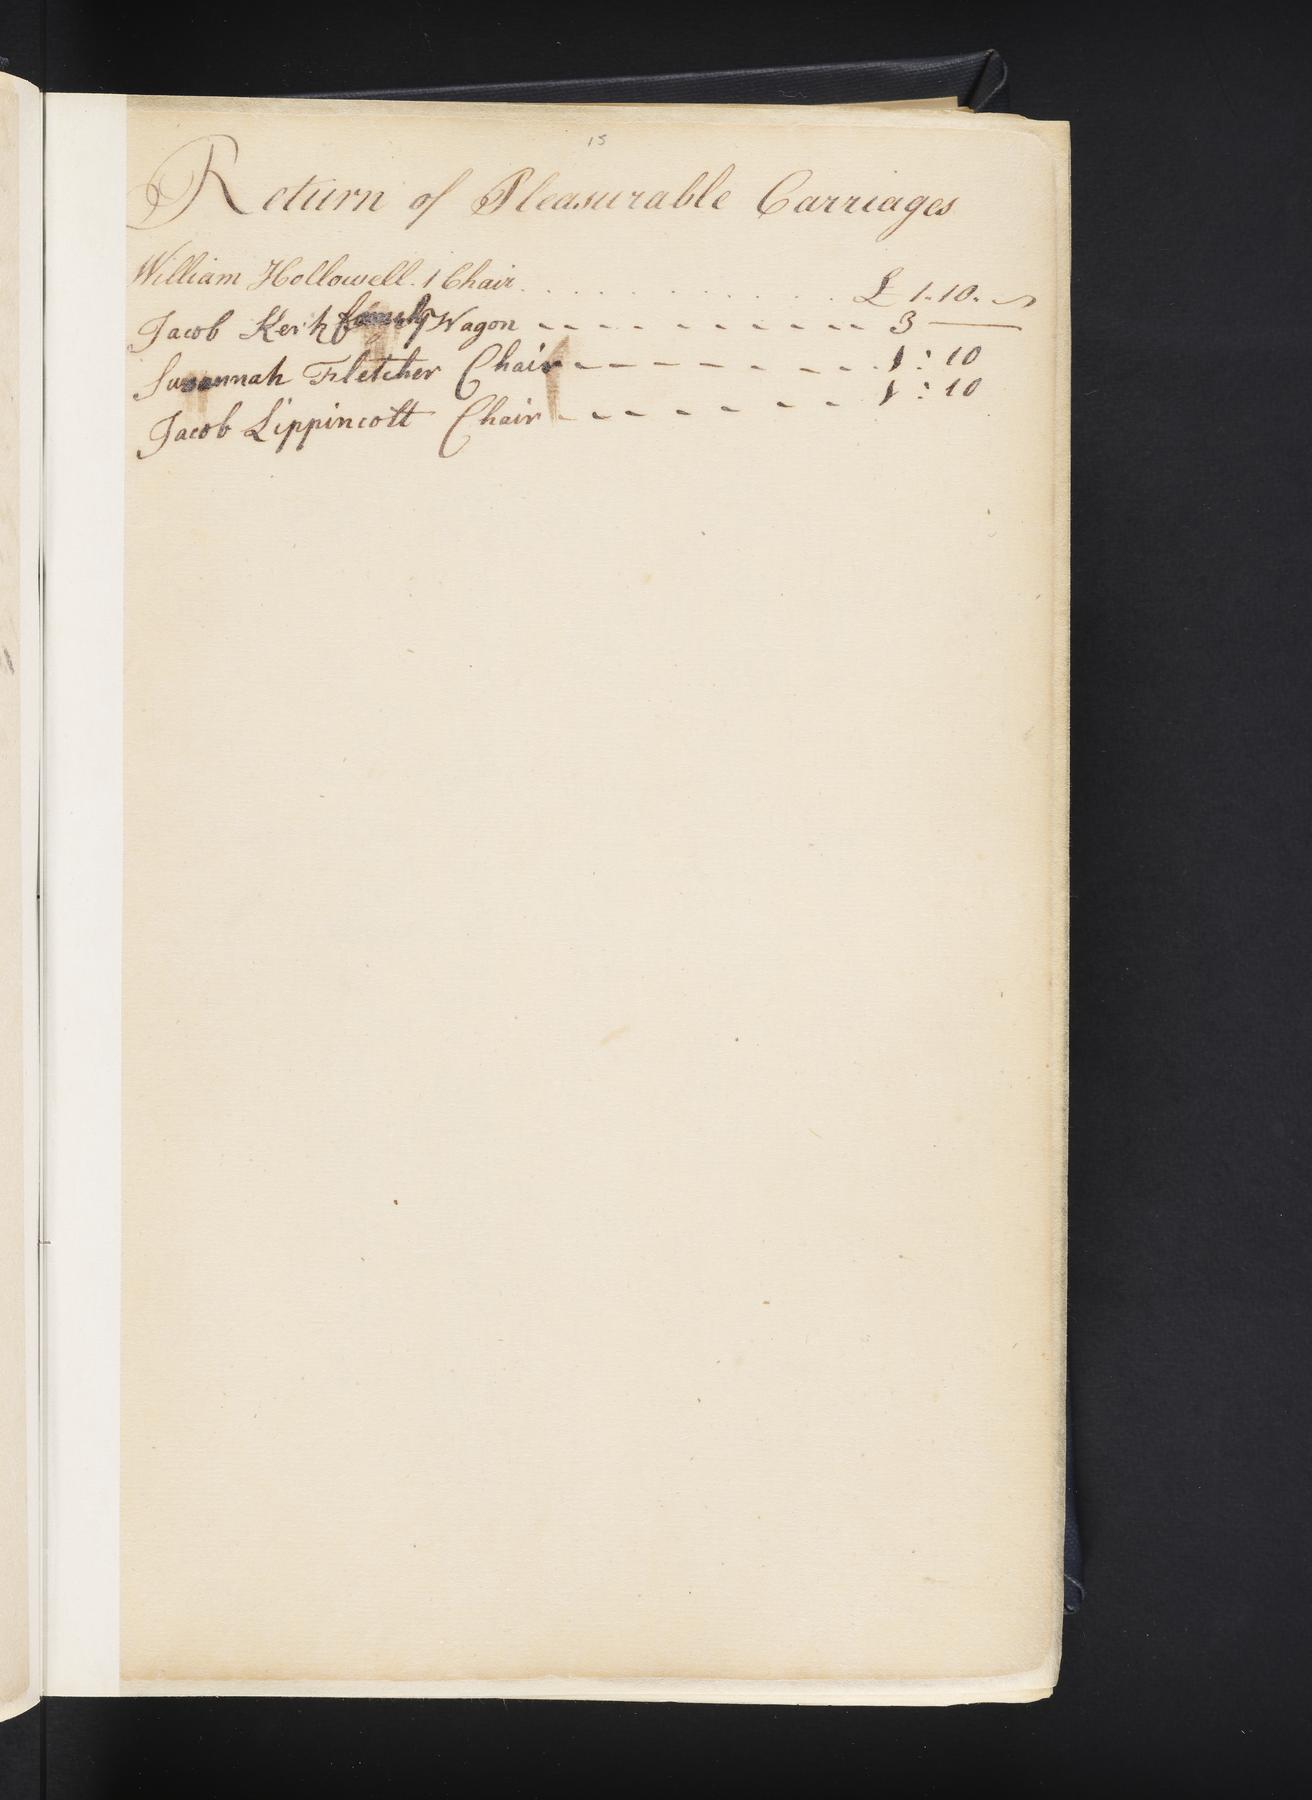 15
Return of Pleasurable Carriages
William Hollowell. 1 Chair. . . . . . . . . . . . £ 1.. 10. ~
Jacob Kerk family Wagon - - - - - - - - - - - 3 —
Susannah Fletcher Chair - - - - - - - - 1 : 10
Jacob Lippincott Chair - - - - - - - 1 : 10